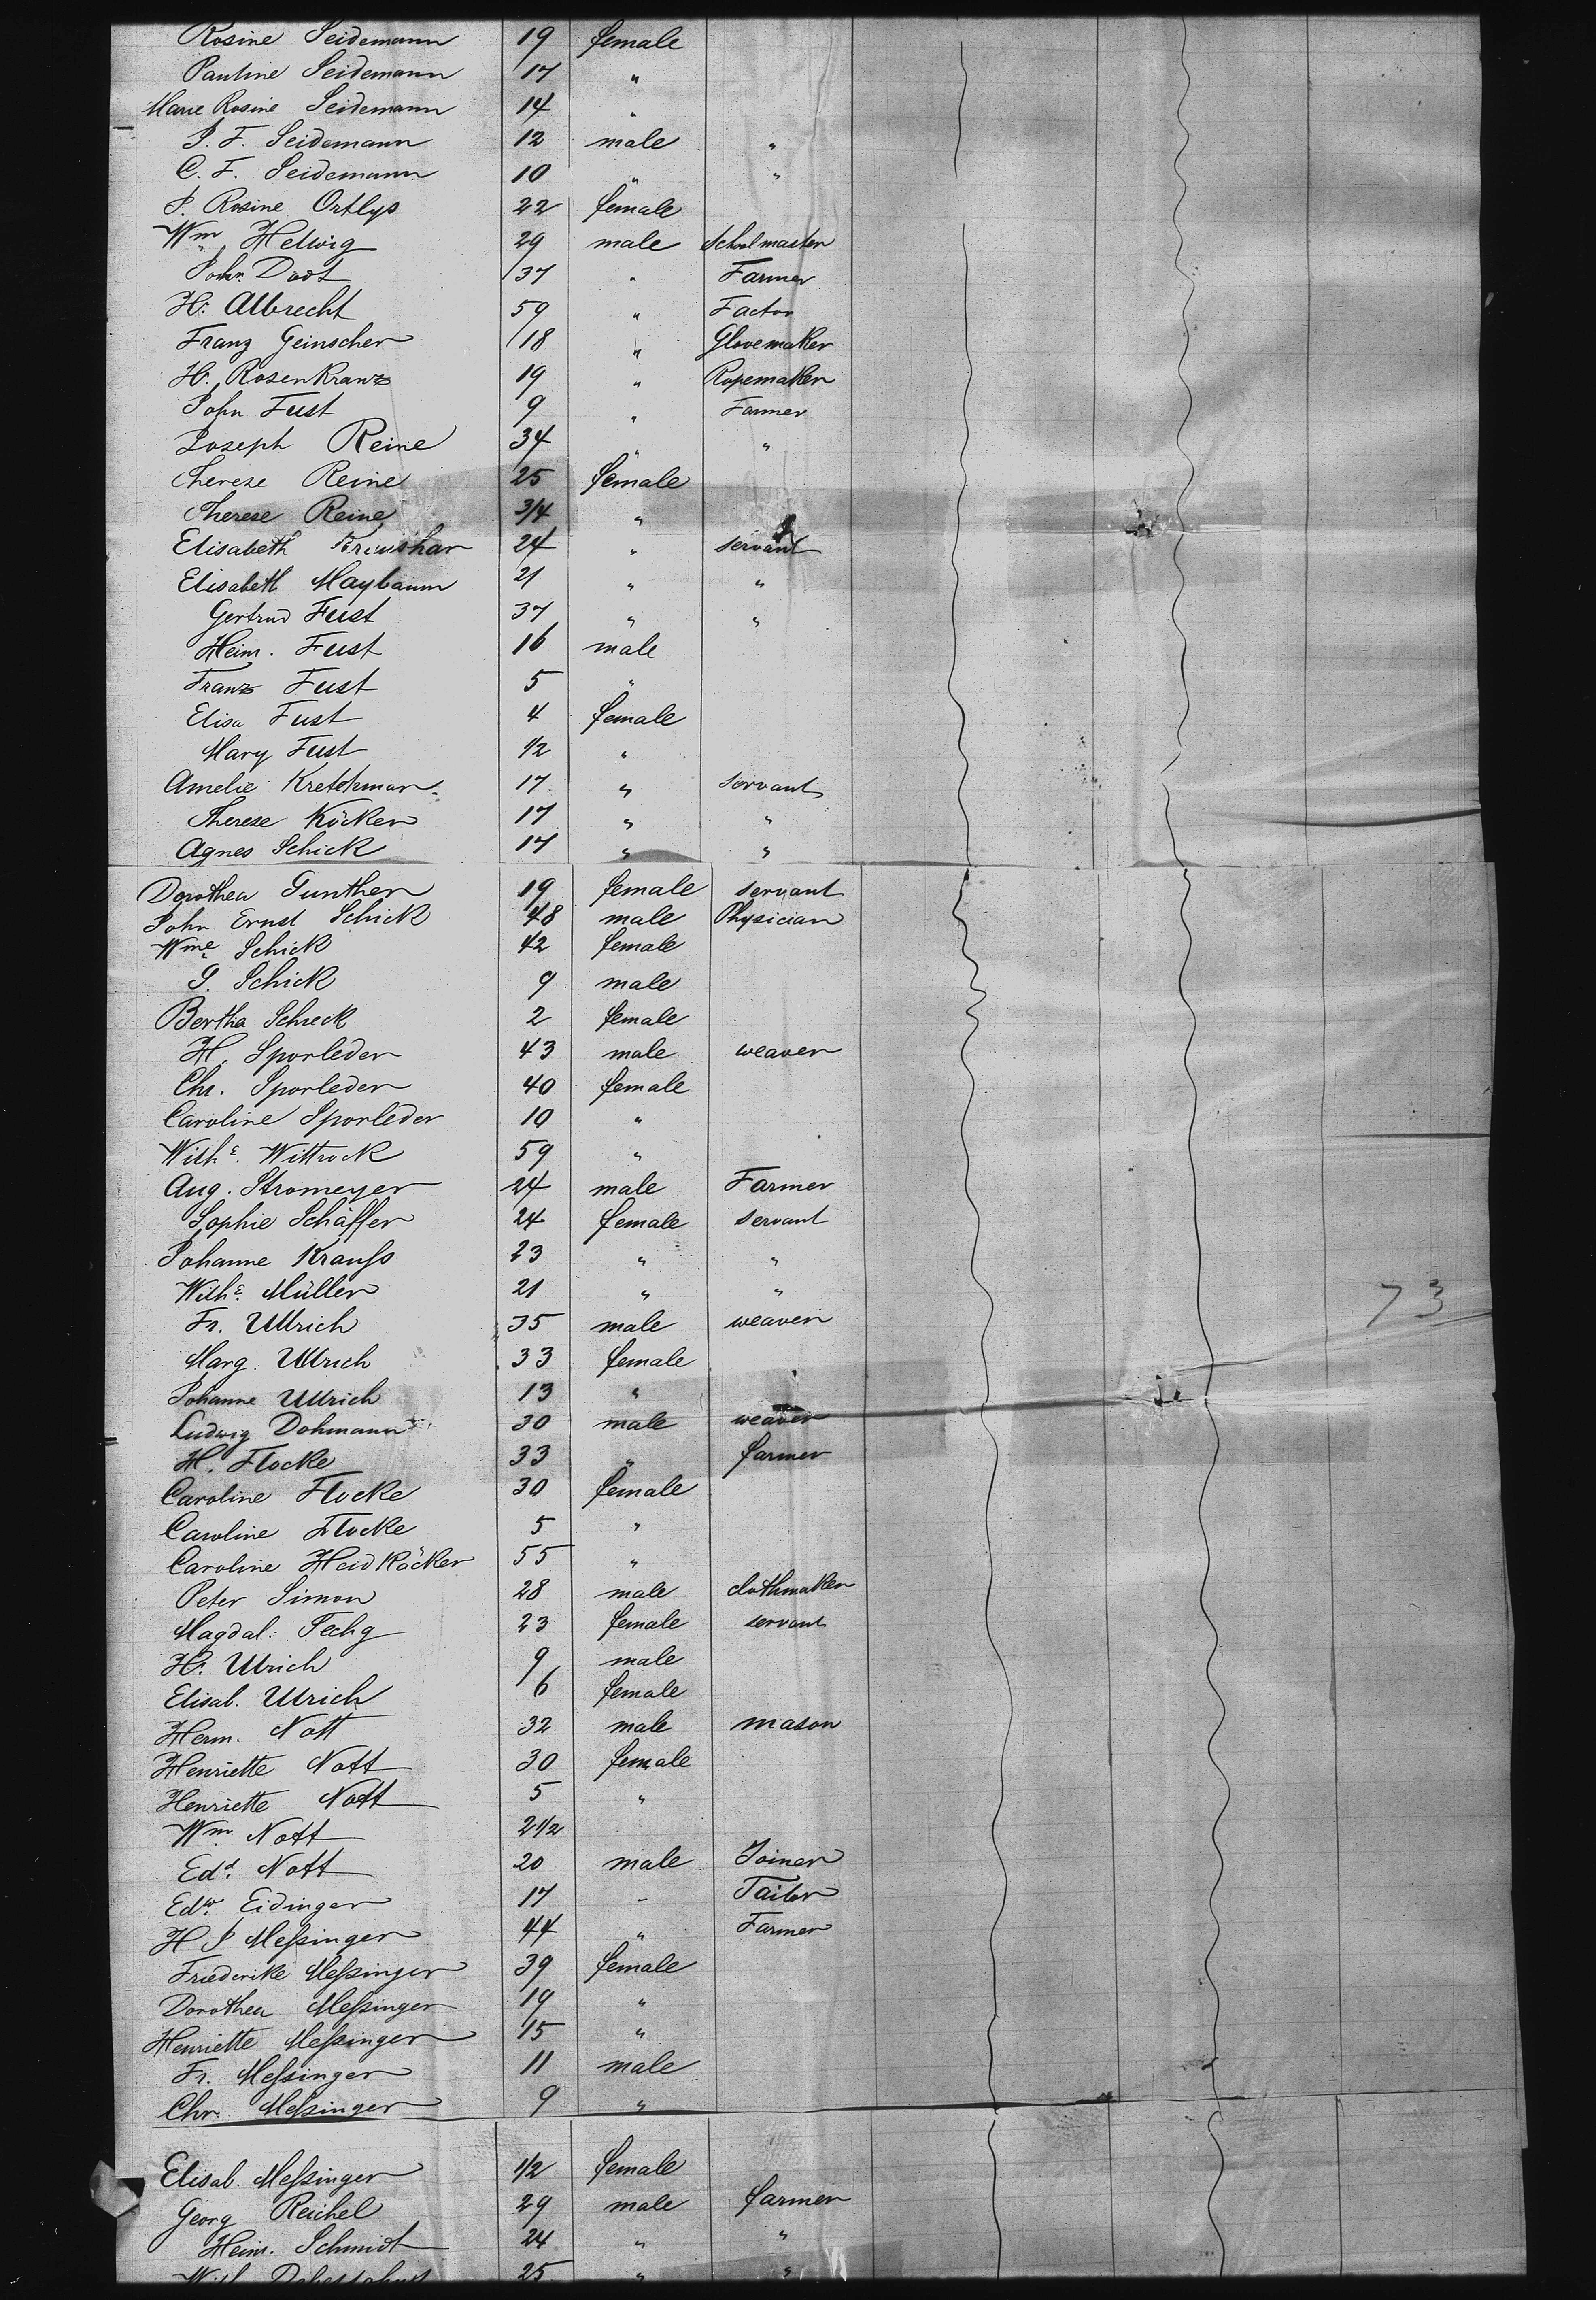 Rosine Seidemann 19 female
Pauline Seidemann 17 "
Marie Rosine Seidemann 14 "
J. F. Seidemann 12 male "
C. F. Seidemann 10 " "
J. Rosine Ortlyp 22 female
Wm. Helwig 29 male Schoolmaster
John Dodt 37 " Farmer
H. Albrecht 59 " Factor
Franz Geinscher 18 " Glovemaker
H. Rosenkranz 19 " Ropemaker
John Fust 9 " Farmer
Joseph Reine 34 " "
Therese Reine 25 female
Therese Reine 3/4 "
Elisabeth 24 " servant
Elisabeth Maybaum 21 " "
Gertrud Fust 37 " "
Heinr. Fust 16 male
Franz Fust 5 "
Elisa Fust 4 female
Mary Fust 1/2 "
Amelie Kretchmar 17 " servant
Therese Köcker 17 " "
Agnes Schick 17 " "
Dorothea Gunther 19 female servant
John Ernst Schick 48 male Physician
Wme. Schick 42 female
J. Schick 9 male
Bertha Schieck 2 female
H. Sporleder 43 male weaver
Chr. Sporleder 40 female
Caroline Sporleder 10 "
Wilhe. Wittrock 59 "
Aug. Stromeyer 24 male Farmer
Sophie Schäffer 24 female servant
Johanne Krauss 23 " "
Wilhe. Müller 21 " "
73
Fr. Ullrich 35 male weaver
Marg. Ullrich 33 female
Johanne Ullrich 13 "
Ludwig Dohmann 30 male weaver
H. Flocke 33 " farmer
Caroline Flocke 30 female
Caroline Flocke 5 "
Caroline Heidkäcker 55 "
Peter Simon 28 male clothmaker
Magdal: Fechg 23 female servant
H. Ulrich 9 male
Elisab. Ulrich 6 female
Herm. Nott 32 male mason
Henriette Nott 30 female
Henriette Nott 5 "
Wm. Nott 2 1/2
Edd. Nott 20 male Joiner
Edw. Eidinger 17 " Tailor
H J Messinger 44 " Farmer
Friederike Messinger 39 female
Dorothea Messinger 19 "
Henriette Messinger 15 "
Fr. Messinger 11 male
Chr. Messinger 9 "
Elisab. Messinger 1/2 female
Georg Reichel 29 male farmer
Heinr. Schmidt 24 " "
25 " "